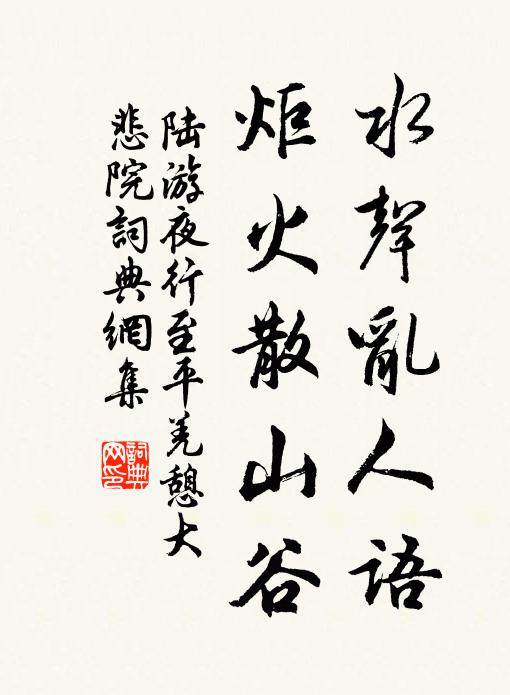 水聲亂人語
炬火散山谷
陆游夜行至平羌憩大
悲院詞典網集
詞典
网印